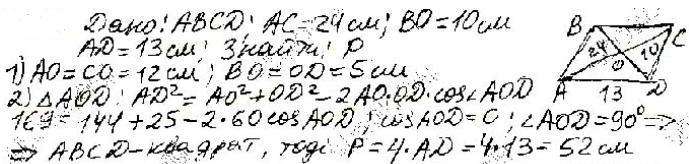 Дано: ABCD; AC=24см; BD=10см
AD=13см; Знайти: P
1) AO=CO=12см; BO=OD=5см
2) △AOD: AD²=AO²+OD²-2AO·OD·cos∠AOD
169=144+25-2·60cosAOD; cosAOD=0; ∠AOD=90°⇒
⇒ ABCD-квадрат, тоді P=4·AD=4·13=52см
B
C
24
10
O
A
13
D